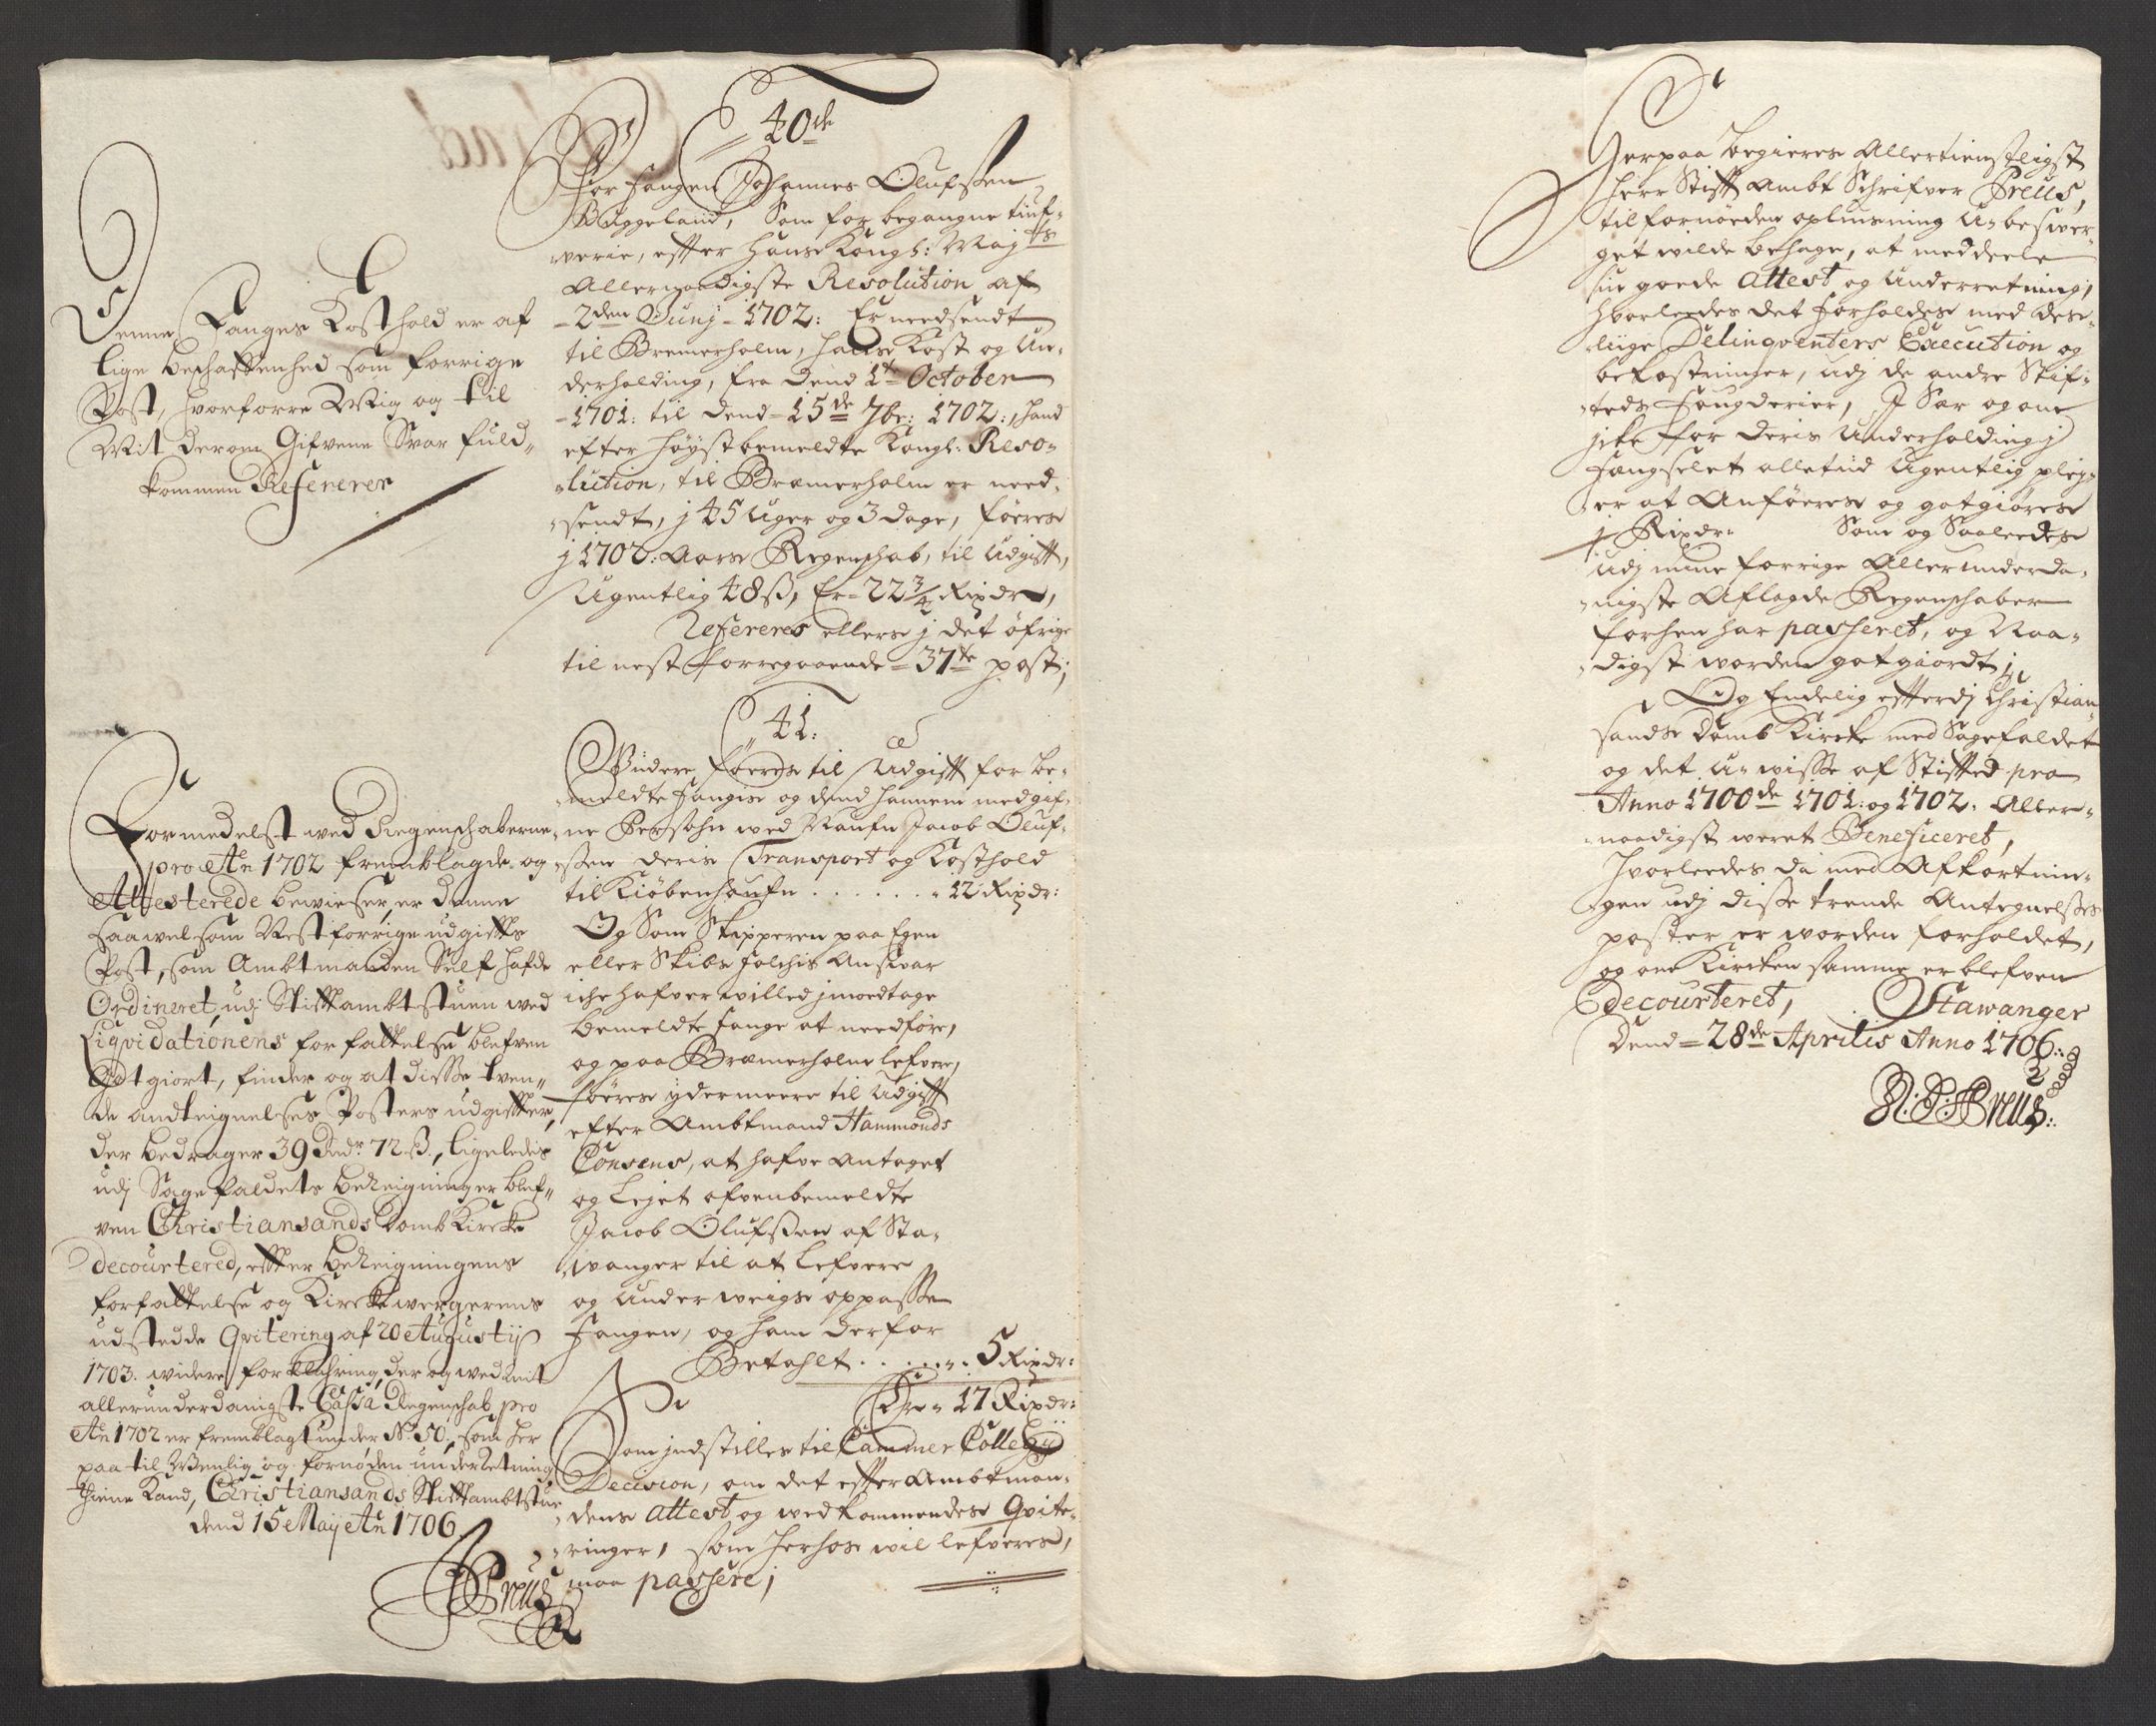 Denne Fanges Kosthold er af
lige beschaffenhed som forrige
Post, hvorforre Mig og til
Mit derom Gifvene Svar fuld„
kommen Refererer
Formedelst ved Regenschaberne
pro Ao 1702 fremblagde og
Attesterede bewiser, er denne
saavelsom Nestforrige udgiffts
Post, som Ambtmanden Self hafde
Ordineret, udj Stifftambtstuen ved
Liqvidationens forfattelse blefven
Godtgiort, finder og at disse tven„
de andteignelses Posters udgiffter,
der bedrager 39 Rdr 72 ß, ligeledis
udj Sagefaldets beReigninger blef„
ven Christiansands Domb Kircke
decourtered, effter beReigningens
forfattelse og Kirckewergerens
udstedde Qvitering af 20 Augustij
1703. videre forklahring, der og ved mit
allerunderdanigste Cassa Regenschab pro
Ao 1702 er fremblagt under No 50, som her
paa til Wenlig og fornøden underretning
thiene kand, Christiansands Stifftambtstue
dend 15 Maij Ao 1706.
Preus
40de
For Fangen Johannes Olufssen
Buggeland, Som for begangne tiuf„
verie, effter Hans Kongl: Mayts
Allernaadigste Resolution af
2den Junj 1702: Er needsendt
til Bremerholm, Hans Kost og Un„
derholding, fra Dend 1te October
1701: til dend 15de 7br: 1702:, hand
efter høystbemeldte Kongl: Reso„
lution, til Bremerholm er need„
sendt, j 45 Uger og 3 dage, føeres
j 1702: Aars Regenschab, til Udgifft,
Ugentlig 48 ß, Er 22 3/4 Rixdr,
Refereres ellers j det øfrige
til nest forregaaende 37te post;
41.
Widere føeres til Udgifft for be„
meldte Fangis og dend hannem medgif„
ne Persohn ved Naufn Jacob Oluf„
ssen deris Transport og Kosthold
til Kiøbenhaufn . . . . . . 12 Rixdr:
Og Som Skipperen paa Egen
eller Skibs Folchis Ansvar
iche hafver villed jmodtage
bemeldte Fange at needføre,
og paa Bremerholm lefvere,
føeres ydermeere til Udgifft
efter Ambtmand Hammonds
Consens, at hafve Antaget
og Lejet ofvenbemeldte
Jacob Olufssen af Sta„
vanger til at Lefvere
og Under veigs oppasse
Fangen, og ham derfor
Betahlt . . . . . . 5 Rixdr:
Er 17 Rixdr:
Som jndstilles til Cammer Collegij
Decision, om det effter Ambtman„
dens attest og vedkommendes Qvite„
ringer, som herhos vil lefveres,
maa passere;
Herpaa begieres Allertienstligst
Herr Stifft Ambt Schrifver Preus,
til fornøeden oplysning U-besver„
get vilde behage, at meddeele
sin goede attest og Underretning,
hvorledes det forholdes med des„
liige Delinqventers Execution og
bekostninger, udj de andre Stif„
teds Fougderier, J Sær og om
jcke for deris Underholding j
Fængselet alletiid Ugentlig plej„
er at Anføeres og gotgiøres
1/2 Rixdr: Som og Saaledes
udj mine forrige Allerunderda„
nigste Aflagde Regenschaber
forhen har passeret, og Naa„
digst vorden gotgiordt;
Og Endelig effterdj Christian„
sands Domb Kircke med Sagefaldet
og det U-wisse af Stiffted pro
Anno 1700de 1701: og 1702. Aller„
naadigst veret Beneficeret,
hvorledes da med Afkortnin„
gen udj disse trende Antegnelses
poster er vorden forholdet,
og om Kircken samme er blefven
decourteret, Stawanger
Dend 28de Aprilis Anno 1706:
Preus: